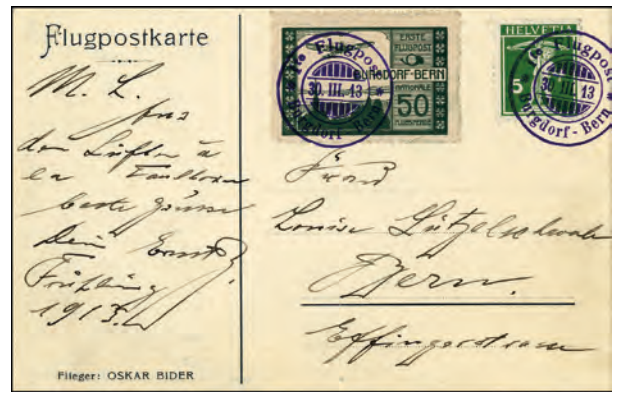 Flugpostkarte
M. L.
Aus
den Lüften
beste Grüsse
Dein Ernst
Frühling
1913.
Flieger: OSKAR BIDER
ERSTE
FLUGPOST
BURGDORF-BERN
NATIONALE
50
1te Flugpost
30. III. 13
Burgdorf - Bern
HELVETIA
5
1te Flugpost
30. III. 13
Burgdorf - Bern
Frau
Louise Lützelschwab
Bern.
Effingerstrasse